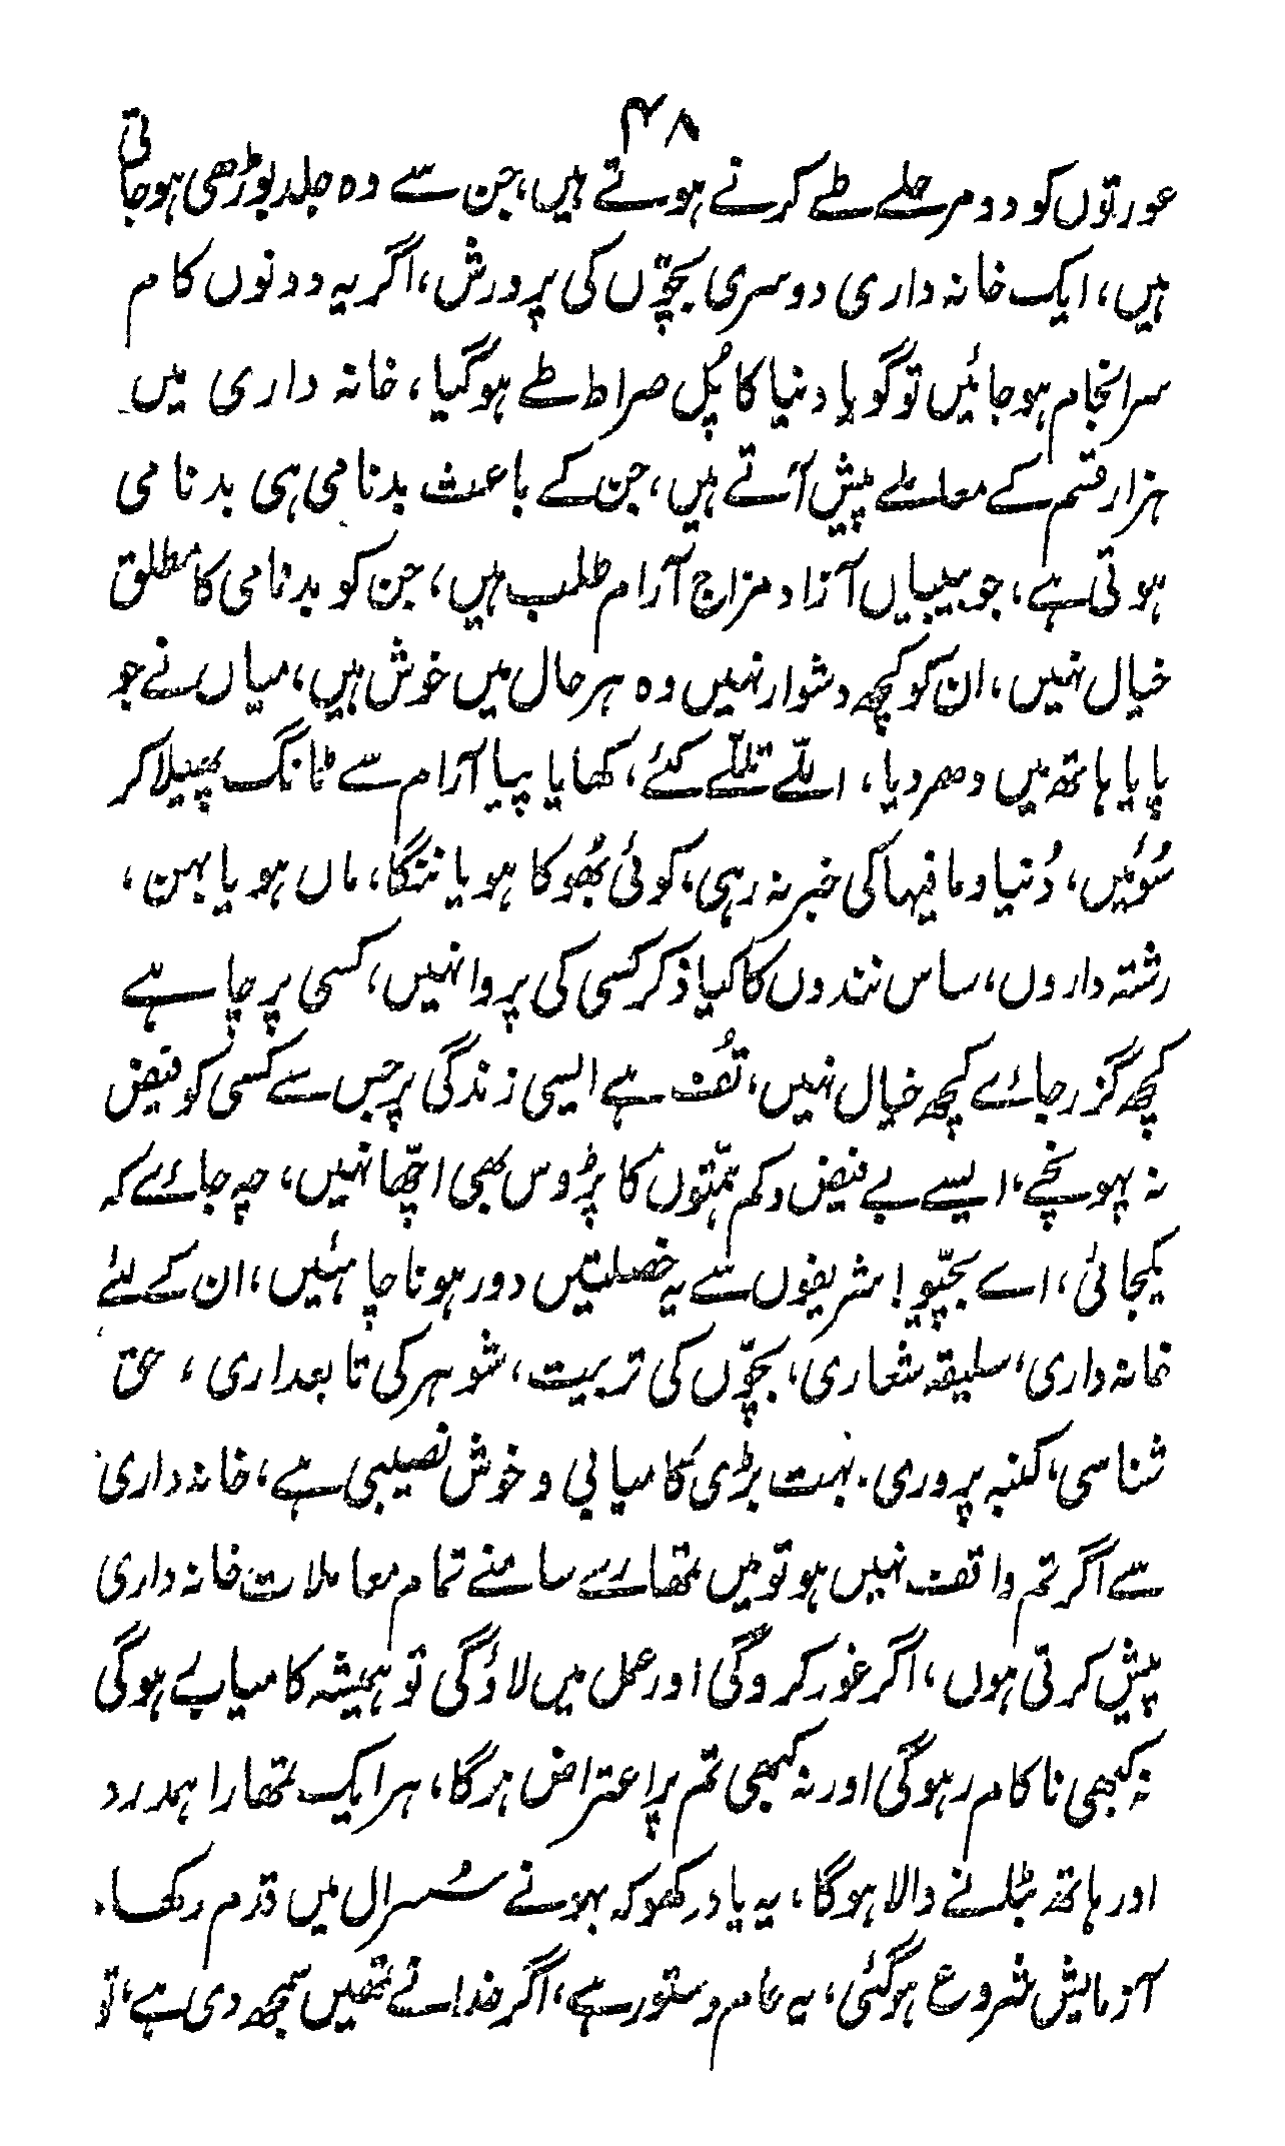 ۴۸
عورتوں کو دو مرحلے طے کرنے ہوتے ہیں، جن سے وہ جلد بوڑھی ہوجاتی
ہیں، ایک خانہ داری دوسری بچّوں کی پرورش، اگر یہ دونوں کام
سرانجام ہوجائیں تو گویا دنیا کا پُل صراط طے ہوگیا، خانہ داری میں
ہزار قسم کے معاملے پیش آتے ہیں، جن کے باعث بدنامی ہی بدنامی
ہوتی ہے، جو بیبیاں آزاد مزاج آرام طلب ہیں، جن کو بدنامی کا مطلق
خیال نہیں، ان کو کچھ دشوار نہیں وہ ہر حال میں خوش ہیں، میاں نے جو
پایا ہاتھ میں دھر دیا، اللّے تللّے کئے، کھایا پیا آرام سے ٹانگ پھیلا کر
سُوئیں، دُنیا و مافیہا کی خبر نہ رہی، کوئی بھُوکا ہو یا ننگا، ماں ہو یا بہن،
رشتہ داروں، ساس نندوں کا کیا ذکر کسی کی پروا نہیں، کسی پر چاہے
کچھ گزر جائے کچھ خیال نہیں، تُف ہے ایسی زندگی پر جس سے کسی کو فیض
نہ پہونچے، ایسے بے فیض و کم ہمّتوں کا پڑوس بھی اچّھا نہیں، چہ جائے کہ
یکجائی، اے بچّیو! شریفوں سے یہ خصلتیں دور ہونا چاہئیں، ان کے لئے
خانہ داری، سلیقہ شعاری، بچّوں کی تربیت، شوہر کی تابعداری، حق
شناسی، کنبہ پروری۔ بہت بڑی کامیابی و خوش نصیبی ہے، خانہ داری
سے اگر تم واقف نہیں ہو تو میں تمھارے سامنے تمام معاملات خانہ داری
پیش کرتی ہوں، اگر غور کروگی اور عمل میں لاؤگی تو ہمیشہ کامیاب ہوگی
نہ کبھی ناکام رہوگی اور نہ کبھی تم پر اعتراض ہوگا، ہر ایک تمھارا ہمدرد
اور ہاتھ بٹلنے والا ہوگا، یہ یاد رکھو کہ بہو نے سُسرال میں قدم رکھا۔
آزمایش شروع ہوگئی، یہ عام دستور ہے، اگر خدا نے تمھیں سمجھ دی ہے، تو